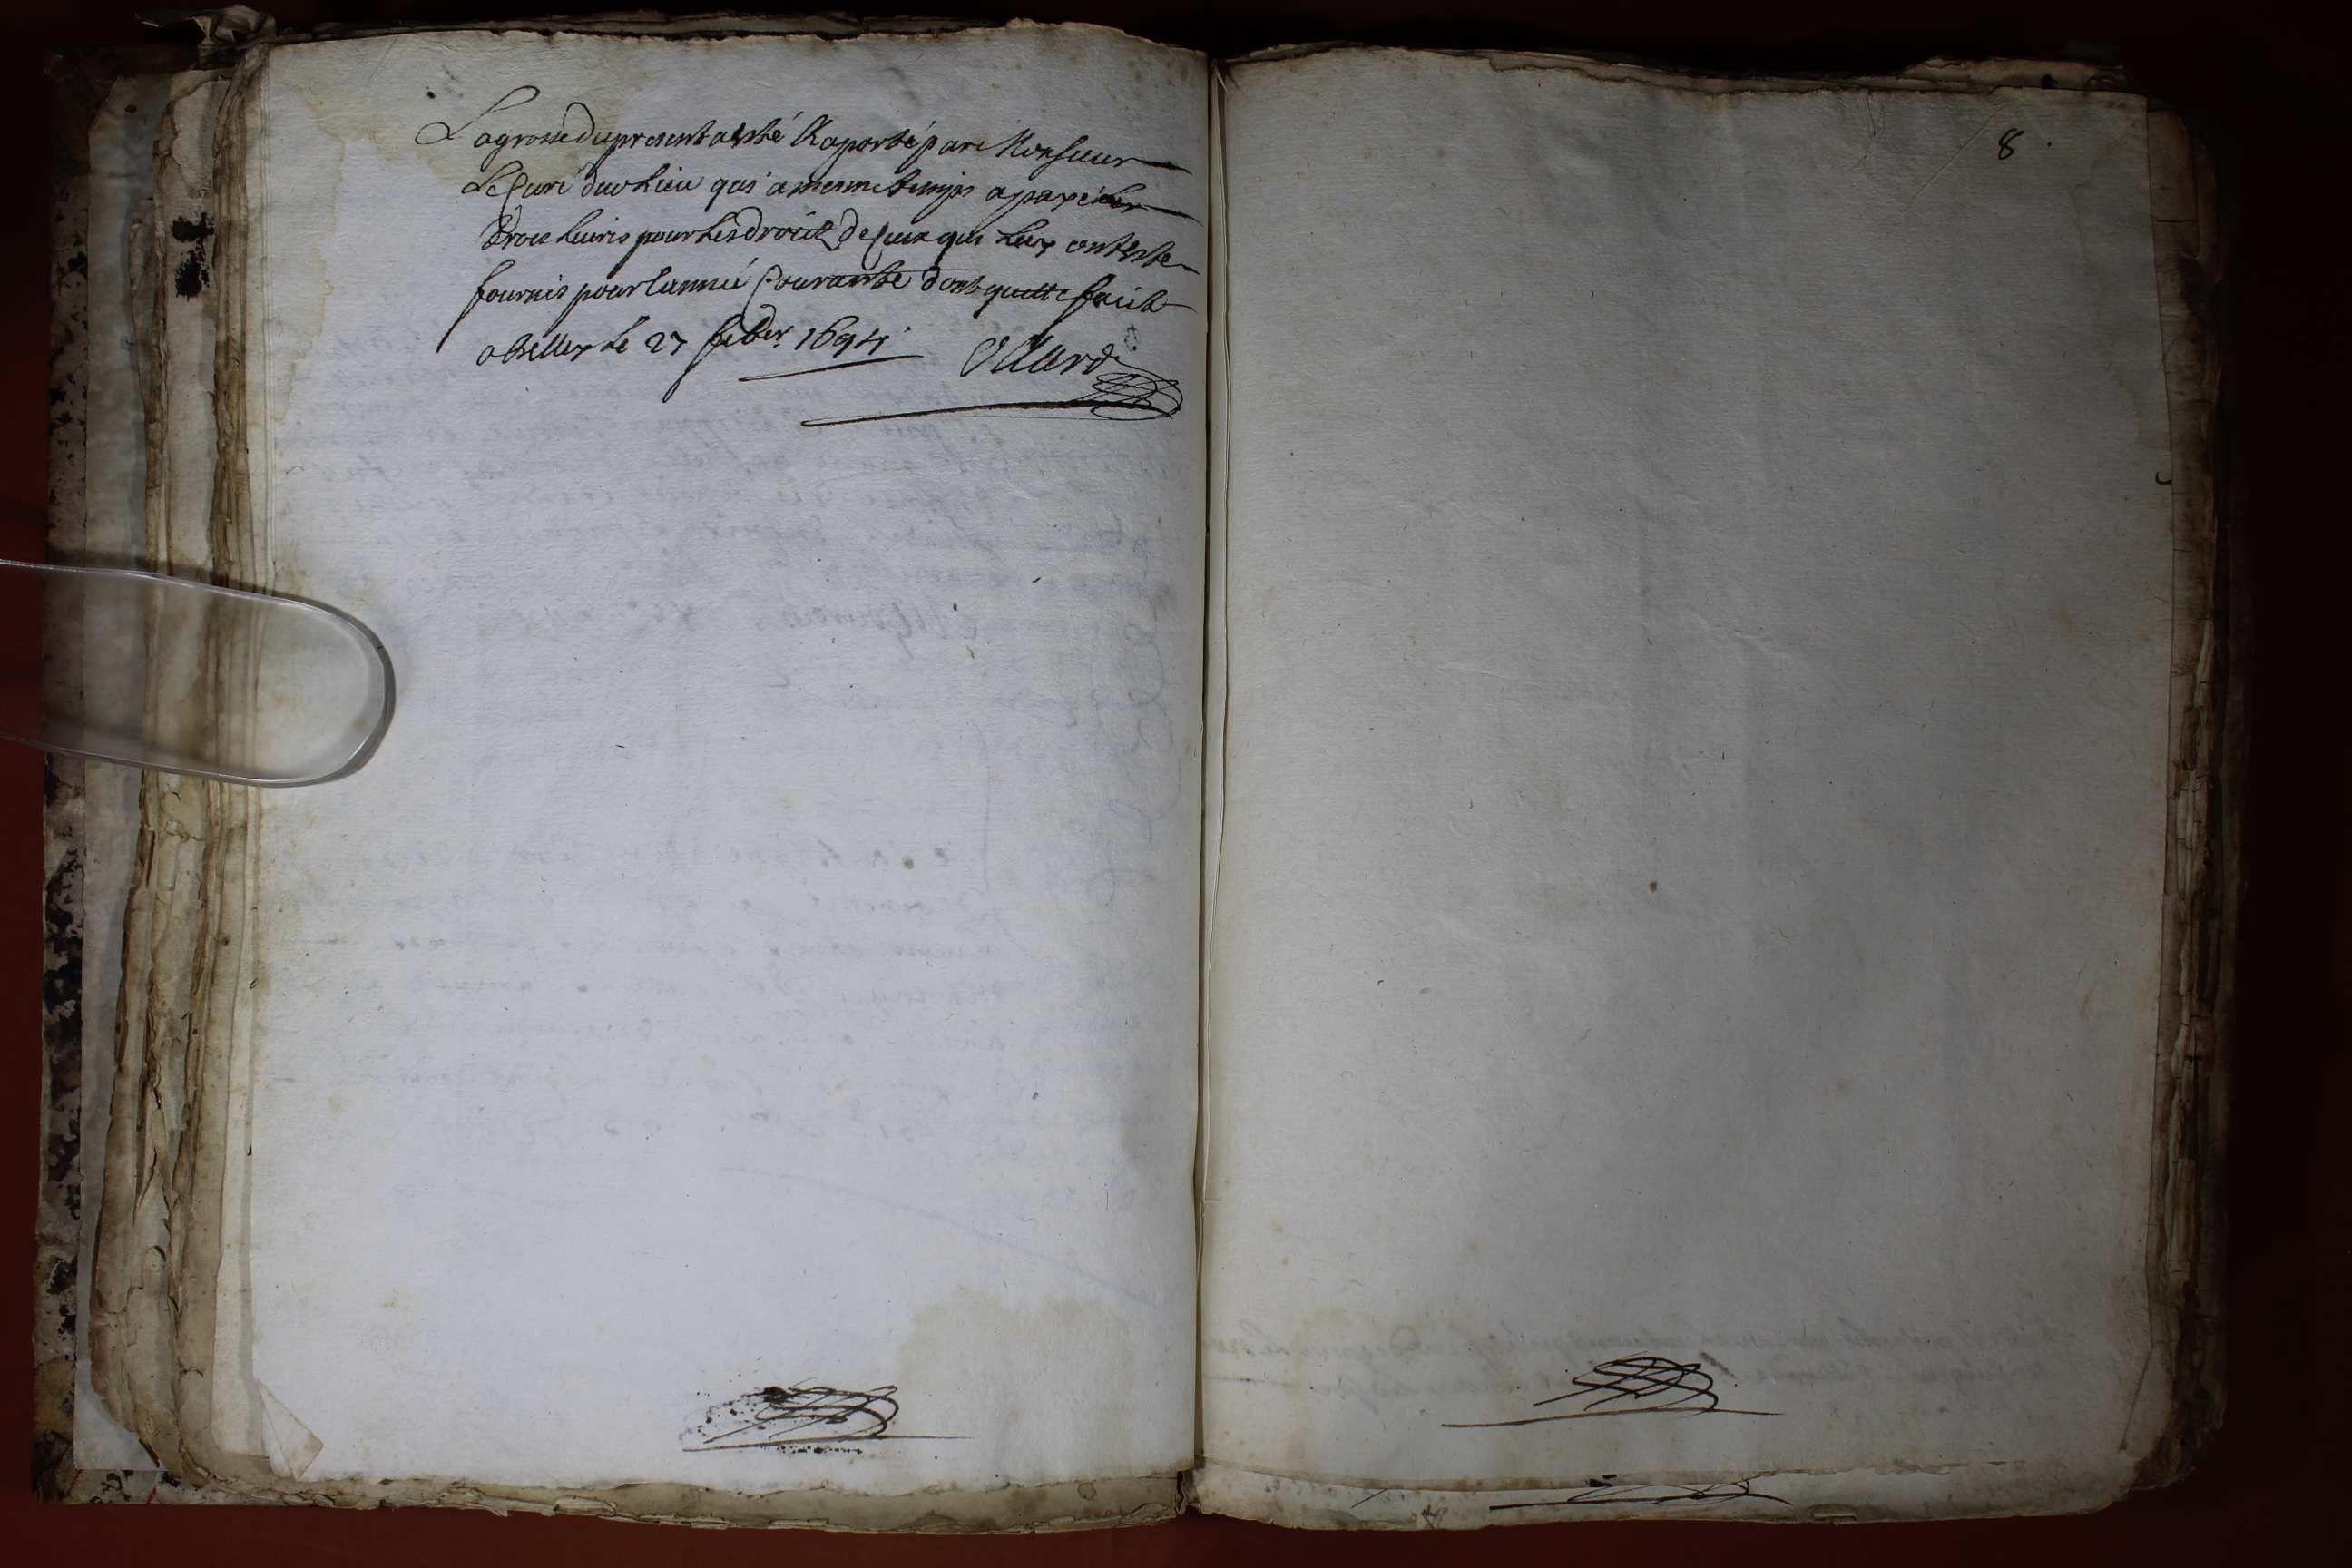 La grosse du present a esté Raporté par Monsieur
Le Curé dud lieu qui a mesme temps a payé
trois livres pour les droits de ceux qui luy ont esté
fournis pour lannée Courante dont quitte faict
a Belley le 27 feber 1694
8